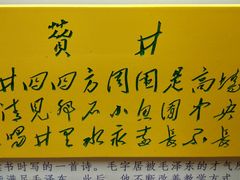 赞井
井四四方周围是高墙
清见卵石小鱼囿中央
喝井里水永远养不长
书时写的一首诗。毛宇居被毛泽东的才气
毛泽东，此后，他不断改善教学方式